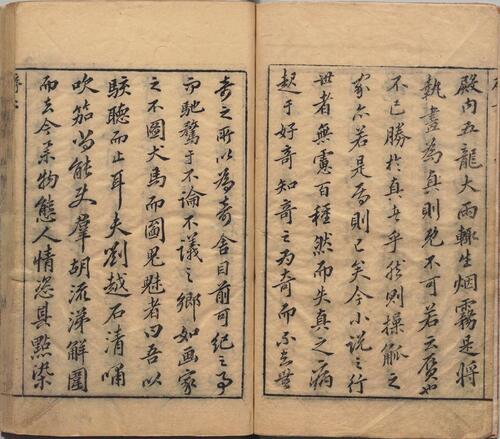 殿内五龍大雨輒生烟霧是將
執畫為真則既不可若云贋也
不已勝於真者乎然則操觚之
家亦若是焉則已矣今小說之行
世者無慮百種然而失真之病
起于好奇知奇之為奇而不知無
奇之所以為奇舍目前可紀之事
而馳騖于不論不議之鄉如画家
之不圖犬馬而圖鬼魅者曰吾以
駭聽而止耳夫劉越石清嘯
吹笳尚能使羣胡流涕解圍
而去今舉物態人情恣其點染
序